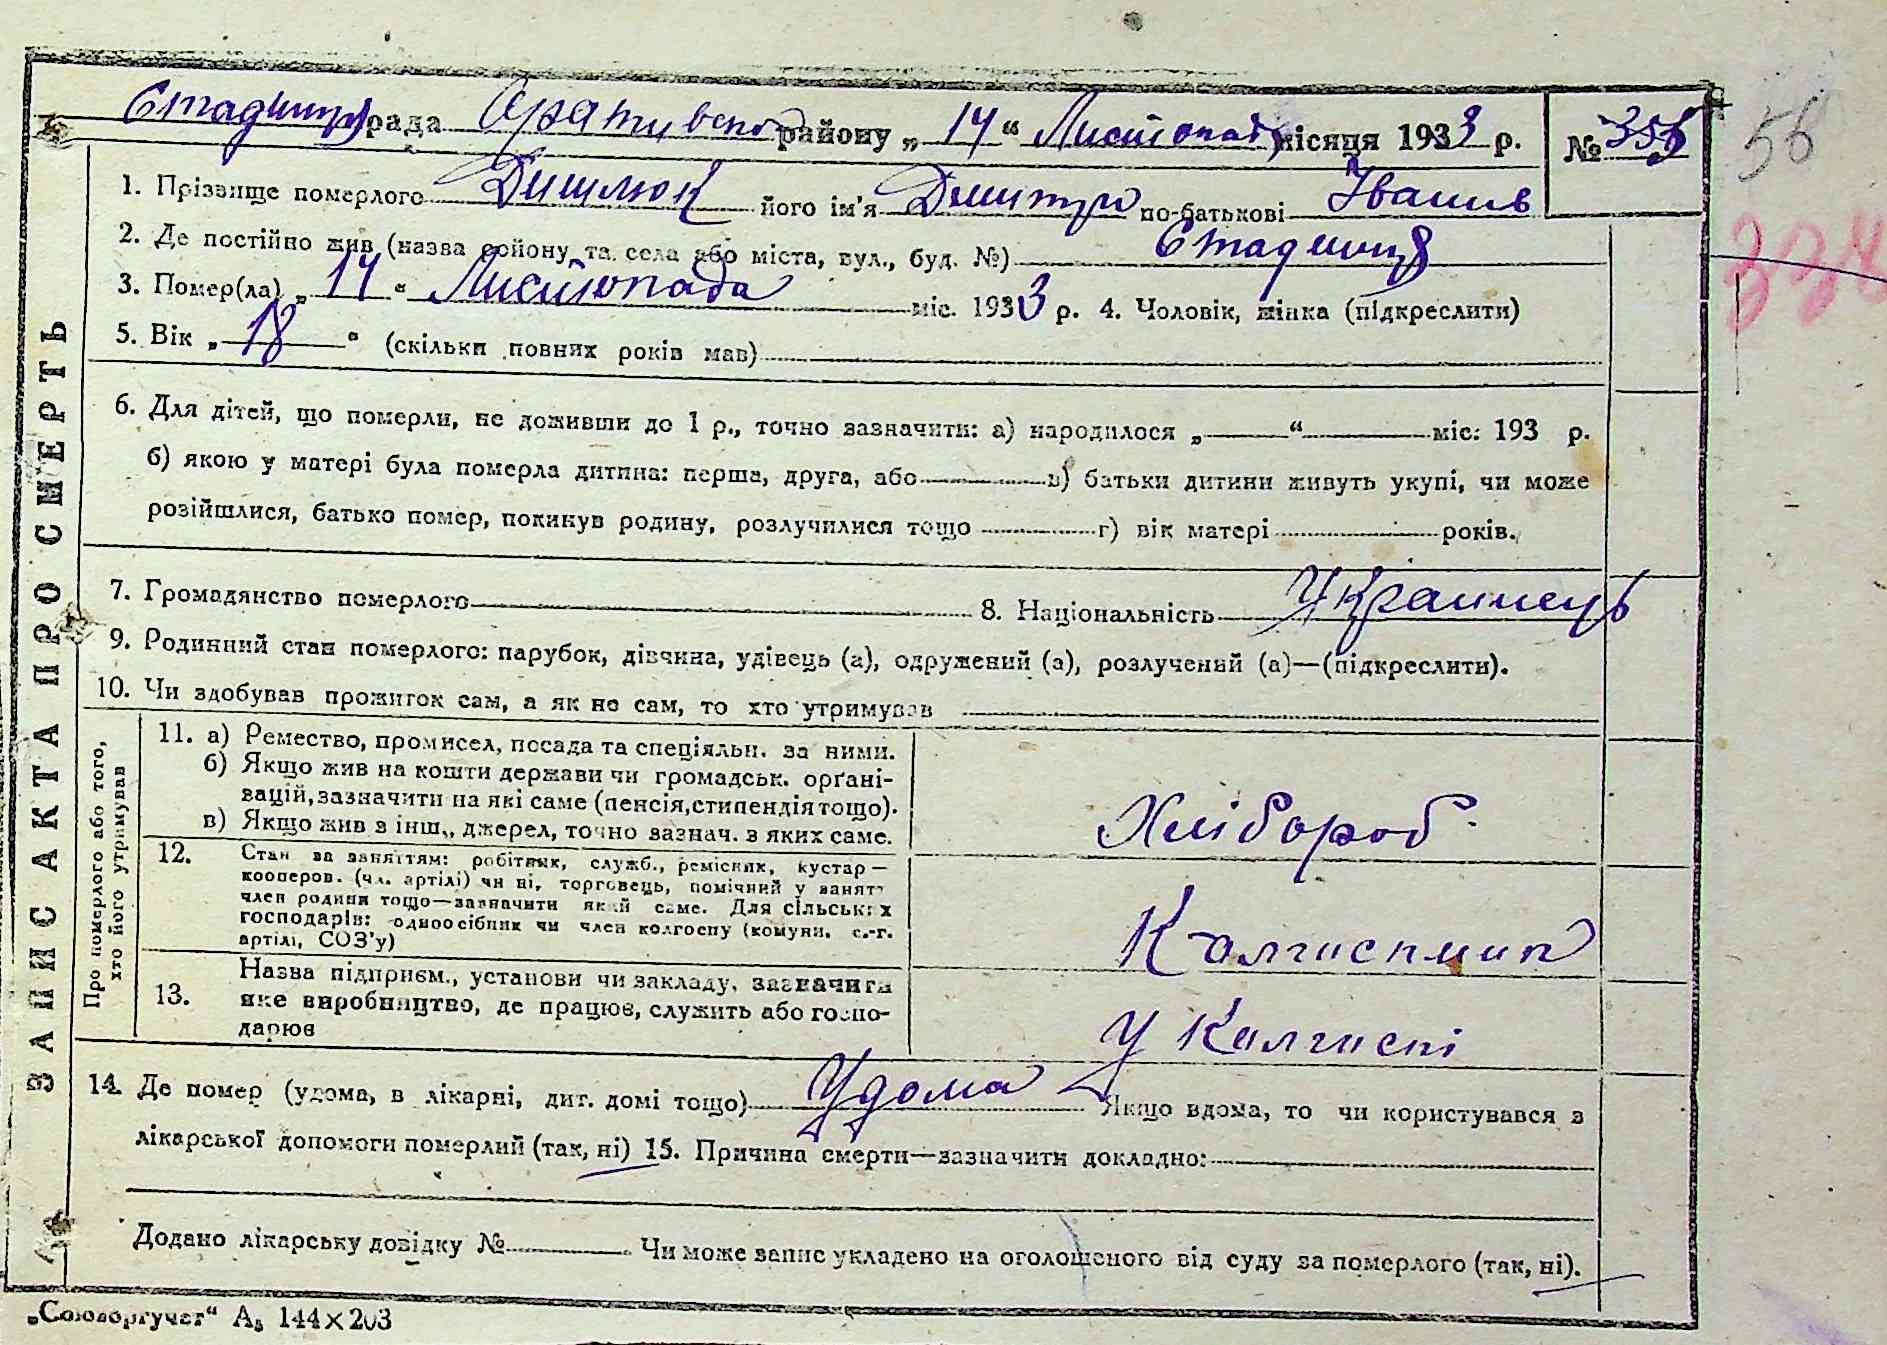 ЗАПИС АКТА ПРО СМЕРТЬ
Стадниця рада Оратівського району „14“ Листопада місяця 1933 р. № 356
56
1. Прізвище померлого його ім'я Дмитро по-батькові Іванів
2. Де постійно жив (назва району та села або міста, вул., буд. №) Стадниця
3. Помер(ла) „14“ Листопада міс. 1933 р. 4. Чоловік, жінка (підкреслити)
5. Вік „18“ (скільки повних років мав)
6. Для дітей, що померли, не доживши до 1 р., точно зазначити: а) народилося „ “ міс. 193 р.
б) якою у матері була померла дитина: перша, друга, або в) батьки дитини живуть укупі, чи може
розійшлися, батько помер, покинув родину, розлучилися тощо г) вік матері років.
7. Громадянство померлого 8. Національність Украинець
9. Родинний стан померлого: парубок, дівчина, удівець (а), одружений (а), розлучений (а)—(підкреслити).
10. Чи здобував прожиток сам, а як не сам, то хто утримував
Про померлого або того,
хто його утримував
11. а) Ремество, промисел, посада та спеціяльн. за ними.
б) Якщо жив на кошти держави чи громадськ. орґані-
зацій, зазначити на які саме (пенсія, стипендія тощо).
в) Якщо жив з інш., джерел, точно зазнач. з яких саме.
Хлібороб.
12. Стан за заняттям: робітник, служб., ремісник, кустар —
кооперов. (чл. артілі) чи ні, торговець, помічний у занятт
член родини тощо—зазначити який саме. Для сільських
господарів: одноосібник чи член колгоспу (комуни, с.-г.
артілі, СОЗ'у)
Колгоспник
13. Назва підприєм., установи чи закладу, зазначити
яке виробництво, де працює, служить або госпо-
дарює
У Калгоспі
14. Де помер (удома, в лікарні, дит. домі тощо) Удома Якщо вдома, то чи користувався з
лікарської допомоги померлий (так, ні) 15. Причина смерти—зазначити докладно:
Додано лікарську довідку № Чи може запис укладено на оголошеного від суду за померлого (так, ні).
„Союзоргучет“ А₅ 144×203